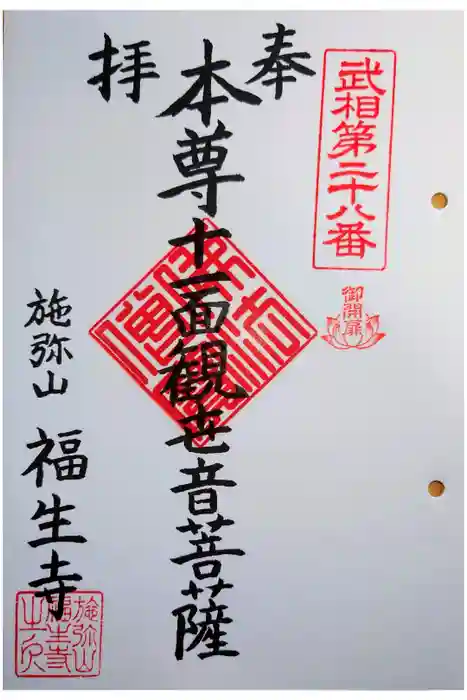 武相第二十八番
御開扉
奉拝
本尊十一面観世音菩薩
施弥山
福生寺
施弥山
福生寺
之印